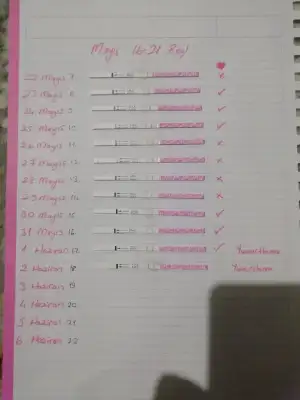 22 Mayıs 7
23 Mayıs 8
24 Mayıs 9
25 Mayıs 10
26 Mayıs 11
27 Mayıs 12
28 Mayıs 13
29 Mayıs 14
30 Mayıs 15
31 Mayıs 16
1 Haziran 17 Yumurtlama
2 Haziran 18 Yumurtlama
3 Haziran 19
4 Haziran 20
5 Haziran 21
6 Haziran 22